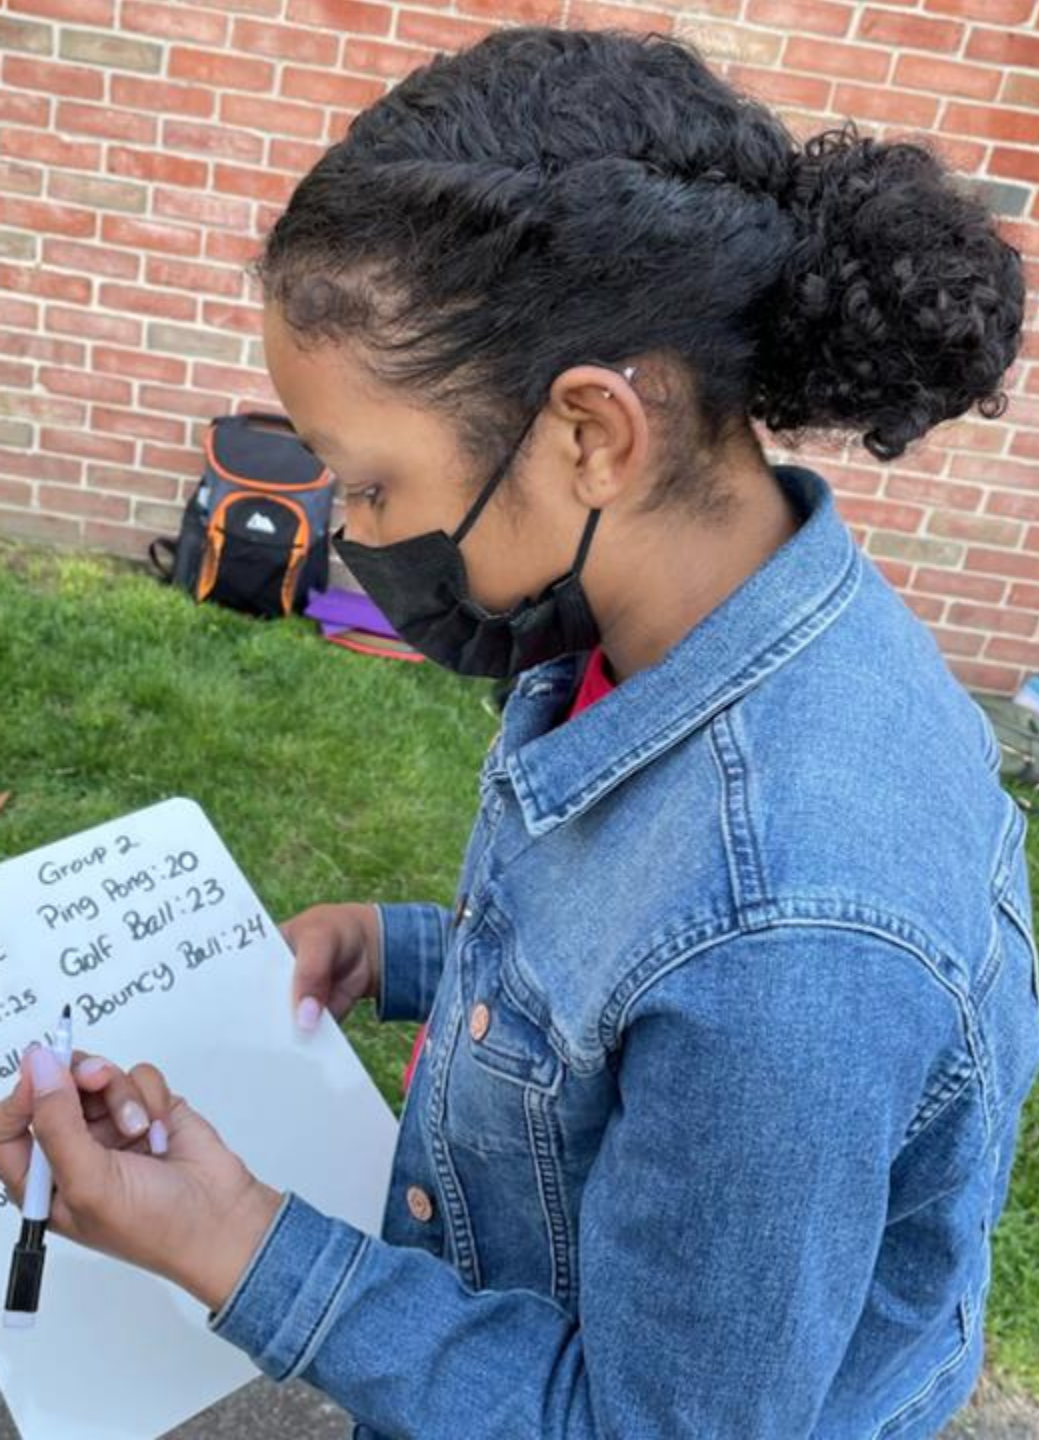 Group 2
Ping Pong: 20
Golf Ball: 23
Bouncy Ball: 24
:25